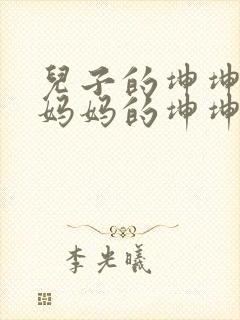 兒子的坤坤
妈妈的坤坤
李光曦